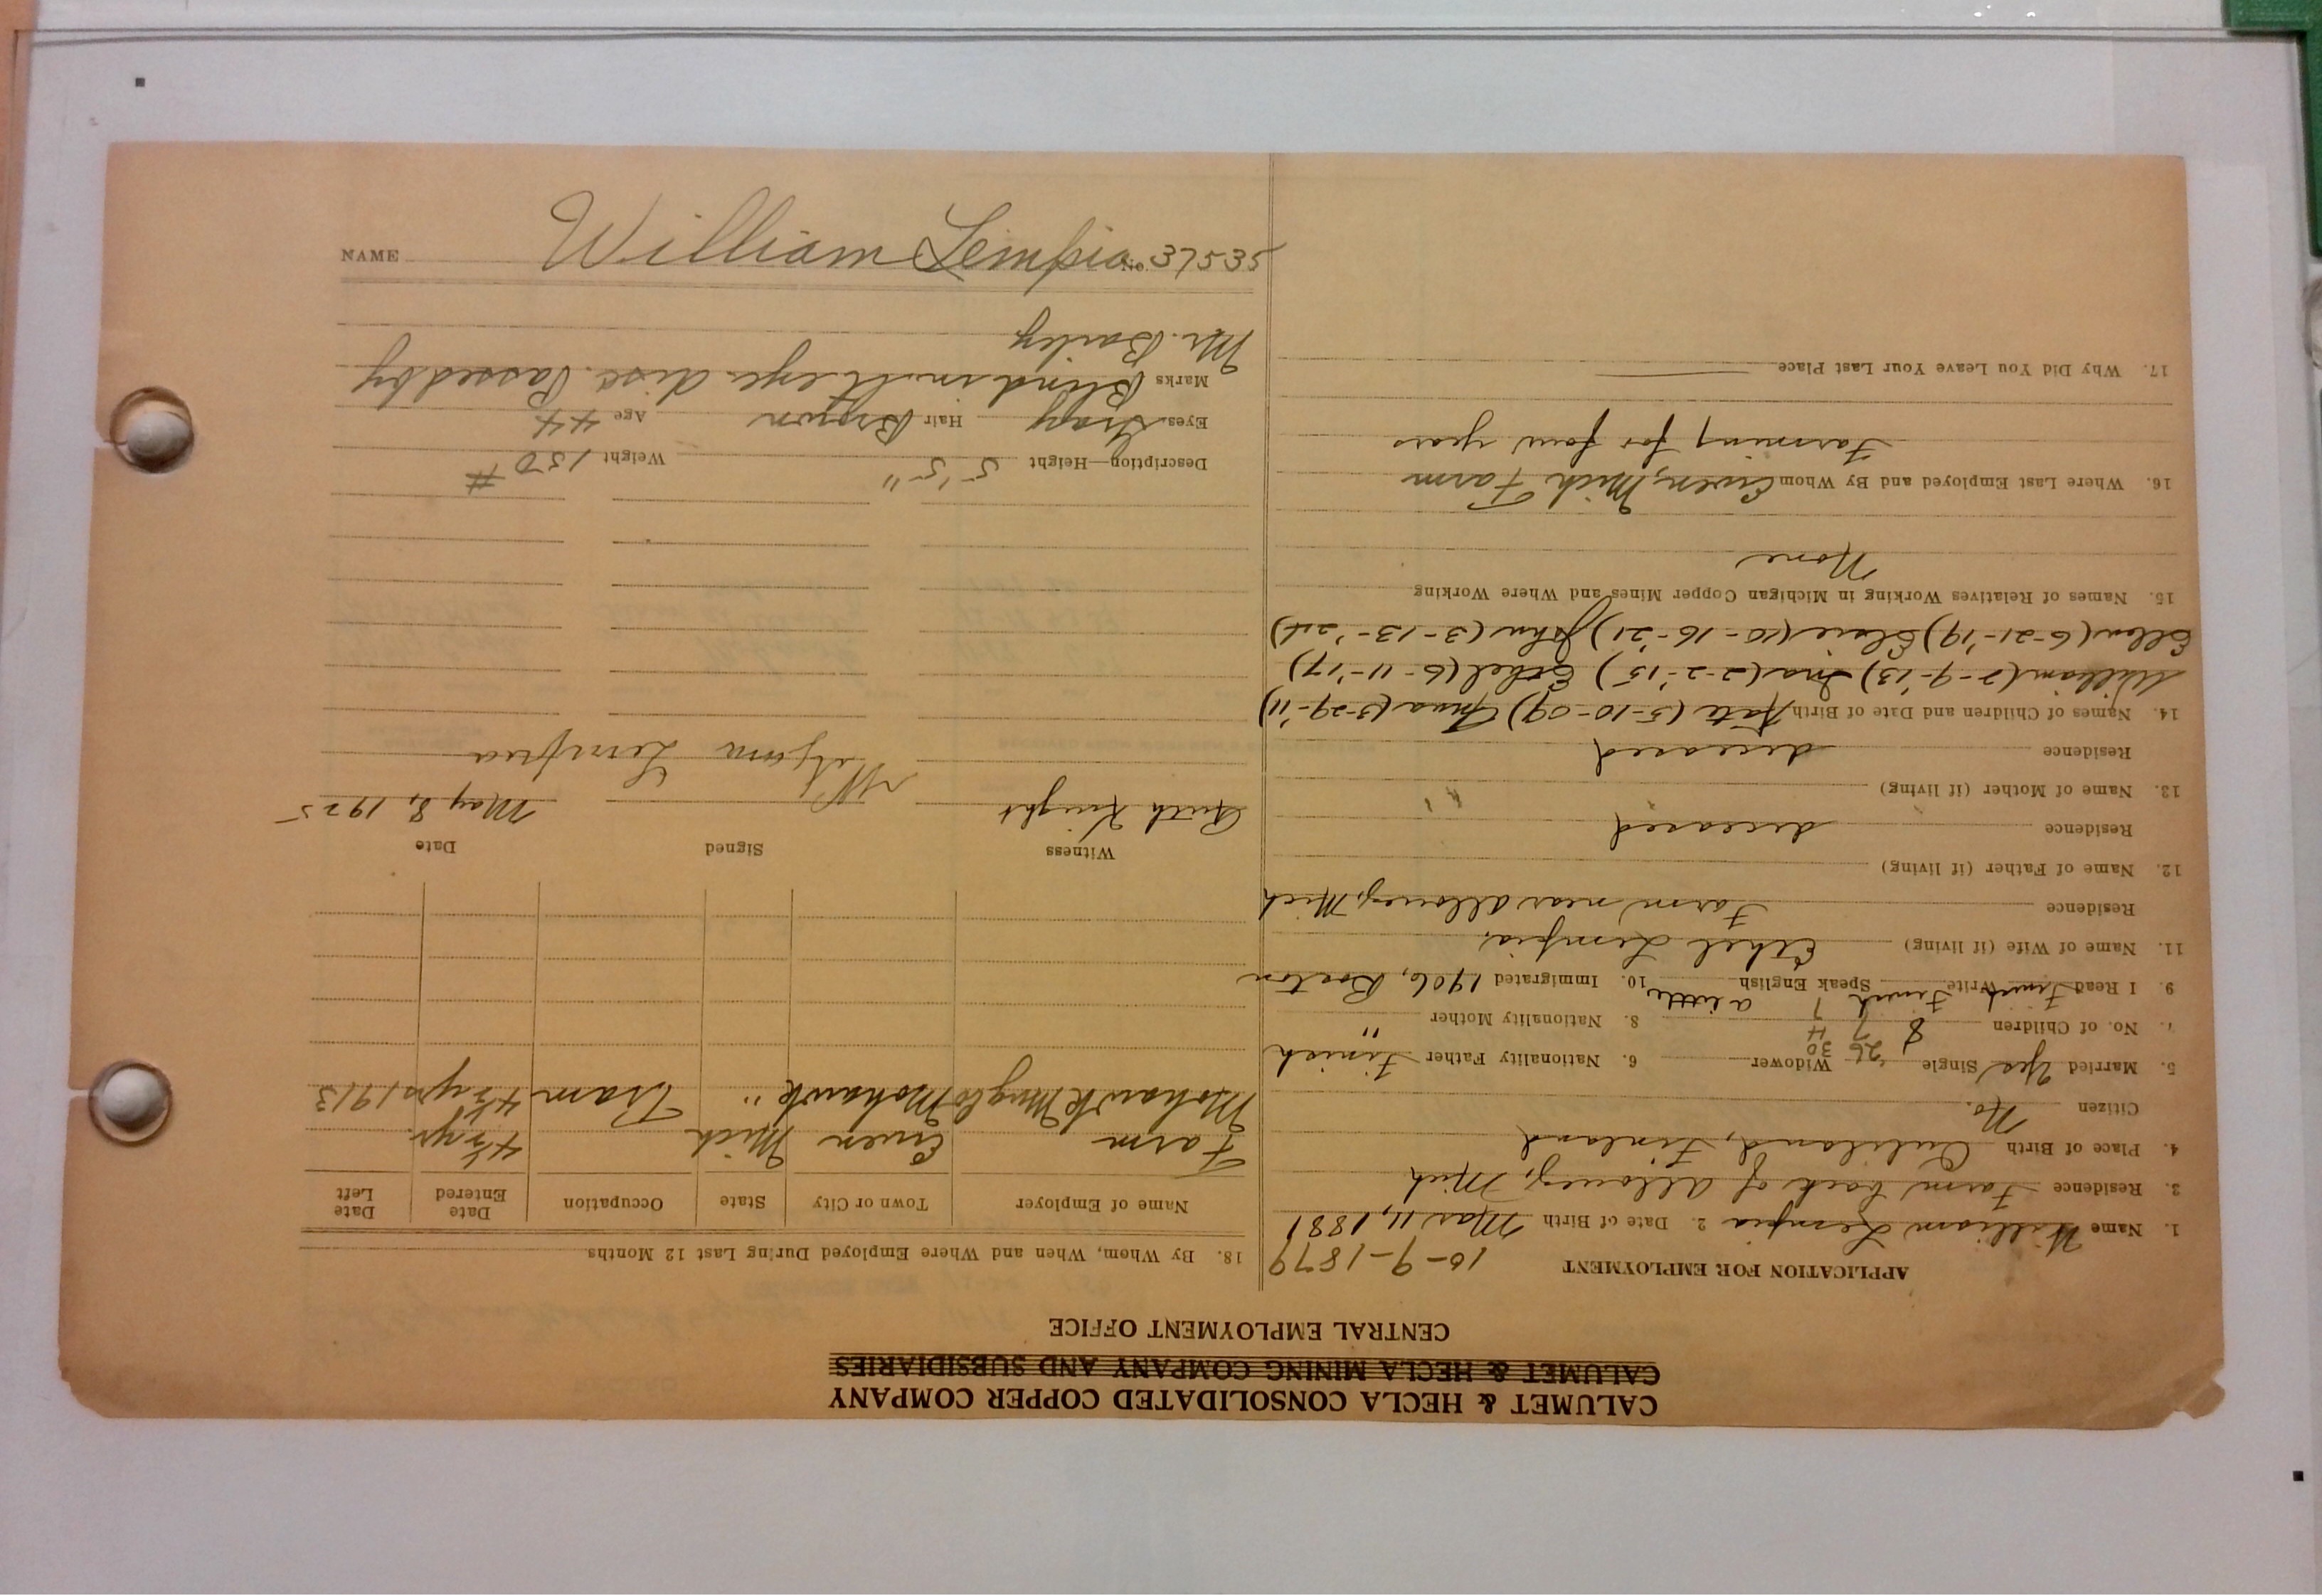 CALUMET & HECLA CONSOLIDATED COPPER COMPANY
CALUMET & HECLA MINING COMPANY AND SUBSIDIARIES
CENTRAL EMPLOYMENT OFFICE
APPLICATION FOR EMPLOYMENT 10-9-1879
1. Name William Lempia 2. Date of Birth Mar 11, 1881
3. Residence Farm back of Allouez, Mich
4. Place of Birth Finland
Citizen No.
5. Married Yes Single Widower 6. Nationality Father Finish
26 30
7. No. of Children 8 7 4 8. Nationality Mother "
9. I Read Finish Write Finish Speak English a little 10. Immigrated 1906, Boston
11. Name of Wife (if living) Ethel Lempia.
Residence Farm near Allouez, Mich
12. Name of Father (if living)
Residence deceased
13. Name of Mother (if living)
Residence deceased
14. Names of Children and Date of Birth Kate (5-10-09) (3-29-'11)
William (7-9-'13) Ina (2-2-'15) Ethel (6-11-'17)
Ellen (6-21-'19) Elsie (10-16-'21) John (3-13-'24)
15. Names of Relatives Working in Michigan Copper Mines and Where Working
None
16. Where Last Employed and By Whom Ewen, Mich Farm
Farming for four years
17. Why Did You Leave Your Last Place
18. By Whom, When and Where Employed During Last 12 Months
Name of Employer Town or City State Occupation Date Entered Date Left
Farm Ewen Mich 4½ yr.
Mohawk Mng Co Mohawk " Tram 4½ yrs 1913
Witness Signed Date
Ruth Knight Lempia May 8, 1925
Description—Height 5'5" Weight 150#
Eyes Gray Hair Brown Age 44
Marks Blind in lt eye. disc. Passed by
Mr. Bailey
NAME William Lempia No. 37535